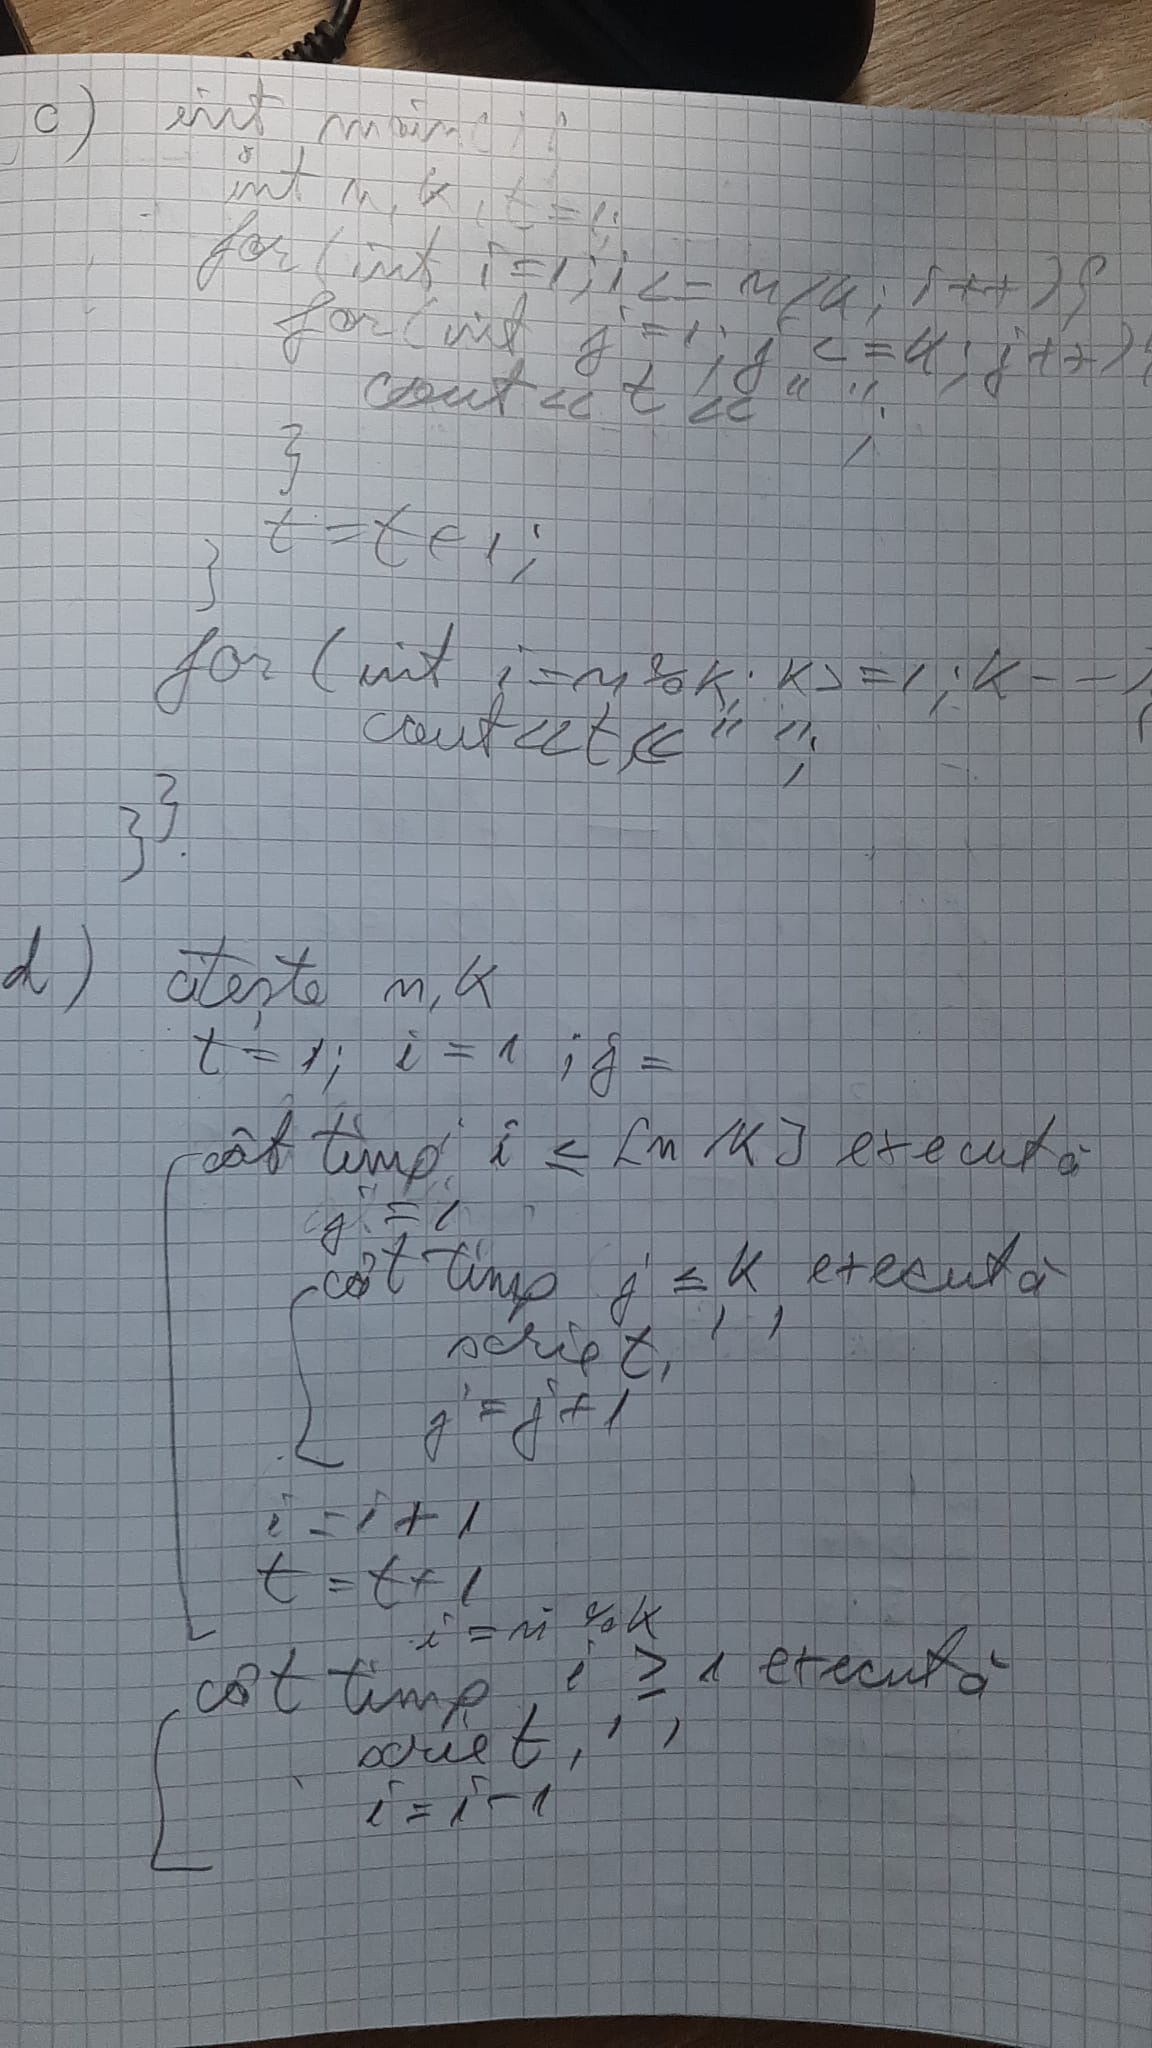 c) int main(){
int n, k, t=1;
for(int i=1; i<=n/k; i++){
for(int j=1; j<=k; j++){
cout<<t<<" ";
}
t=t+1;
}
for(int i=n%k; k>=1; k--){
cout<<t<<" ";
}
}
d) citește n, k
t=1; i=1; j=
cât timp i ≤ [n/k] execută
j=1
cât timp j ≤ k execută
scrie t, ' '
j=j+1
i=i+1
t=t+1
i=n%k
cât timp i ≥ 1 execută
scrie t, ' '
i=i-1